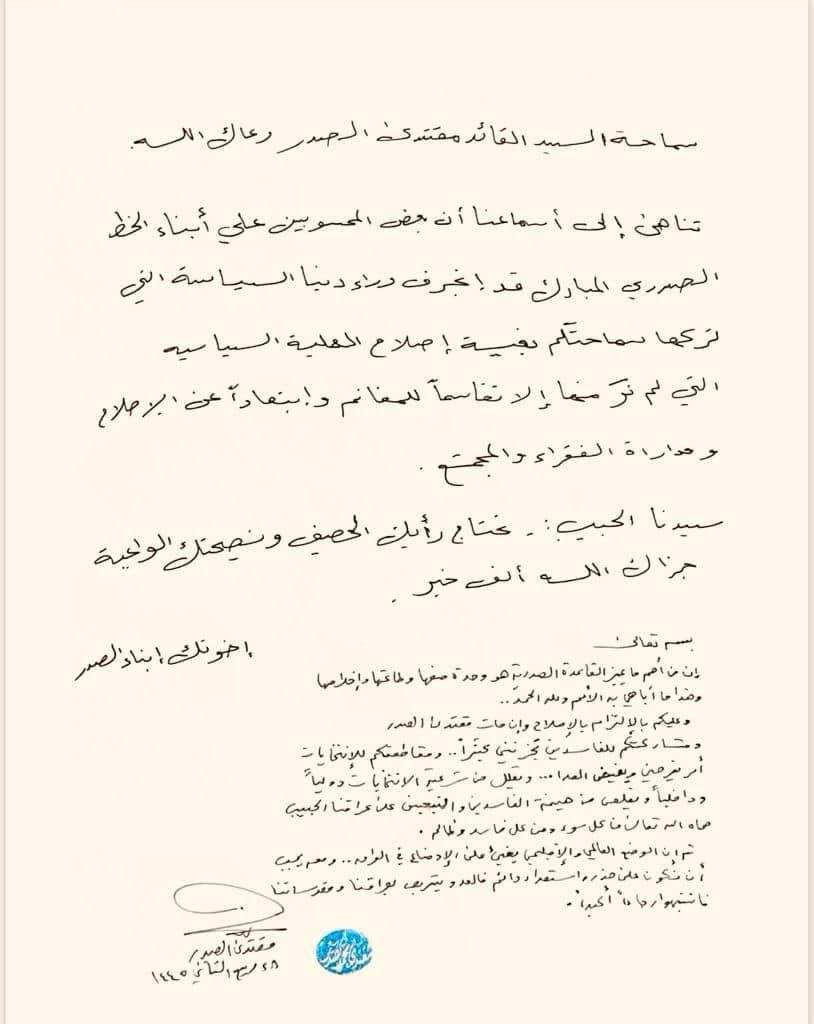 سماحة السيد القائد مقتدى الصدر رعاك الله.
تناهى إلى أسماعنا أن بعض المحسوبين على أبناء الخط
الصدري المبارك قد إنجرف وراء دنيا السياسة التي
تركها سماحتكم بغية إصلاح العملية السياسيه
التي لم نرَ منها إلا تقاسماً للمغانم وإبتعاداً عن الإصلاح
ومداراة الفقراء والمجتمع.
سيدنا الحبيب:. نحتاج رأيك الحصيف ونصيحتك الواعية
جزاك الله ألف خير.
إخوتك إبناء الصدر
بسمه تعالى
إن من أهم ما يميز القاعدة الصدرية هو وحدة صفها وطاعتها وإخلاصها
وهذا ما أباهي به الأمم ولله الحمد..
وعليكم بالإلتزام بالإصلاح وإن مات مقتدى الصدر
ومشاركتكم للفاسدين تحزنني كثيراً.. ومقاطعتكم للإنتخابات
أمر يفرحني ويغيض العدا... ويقلل من شرعية الإنتخابات دولياً
وداخلياً ويقلص من هيمنة الفاسدين والتبعيين على عراقنا الحبيب
حماه الله تعالى من كل سوء ومن كل فاسد وظالم.
ثم إن الوضع العالمي والإقليمي يغني عن الأوضاع في العراق.. ومعه يجب
أن نكون على حذر وإستعداد دائم فالعدو يتربص بعراقنا ومقدساتنا
فانتبهوا رجاءاً أكيداً.
مقتدى الصدر
٢٨ ربيع الثاني ١٤٤٥